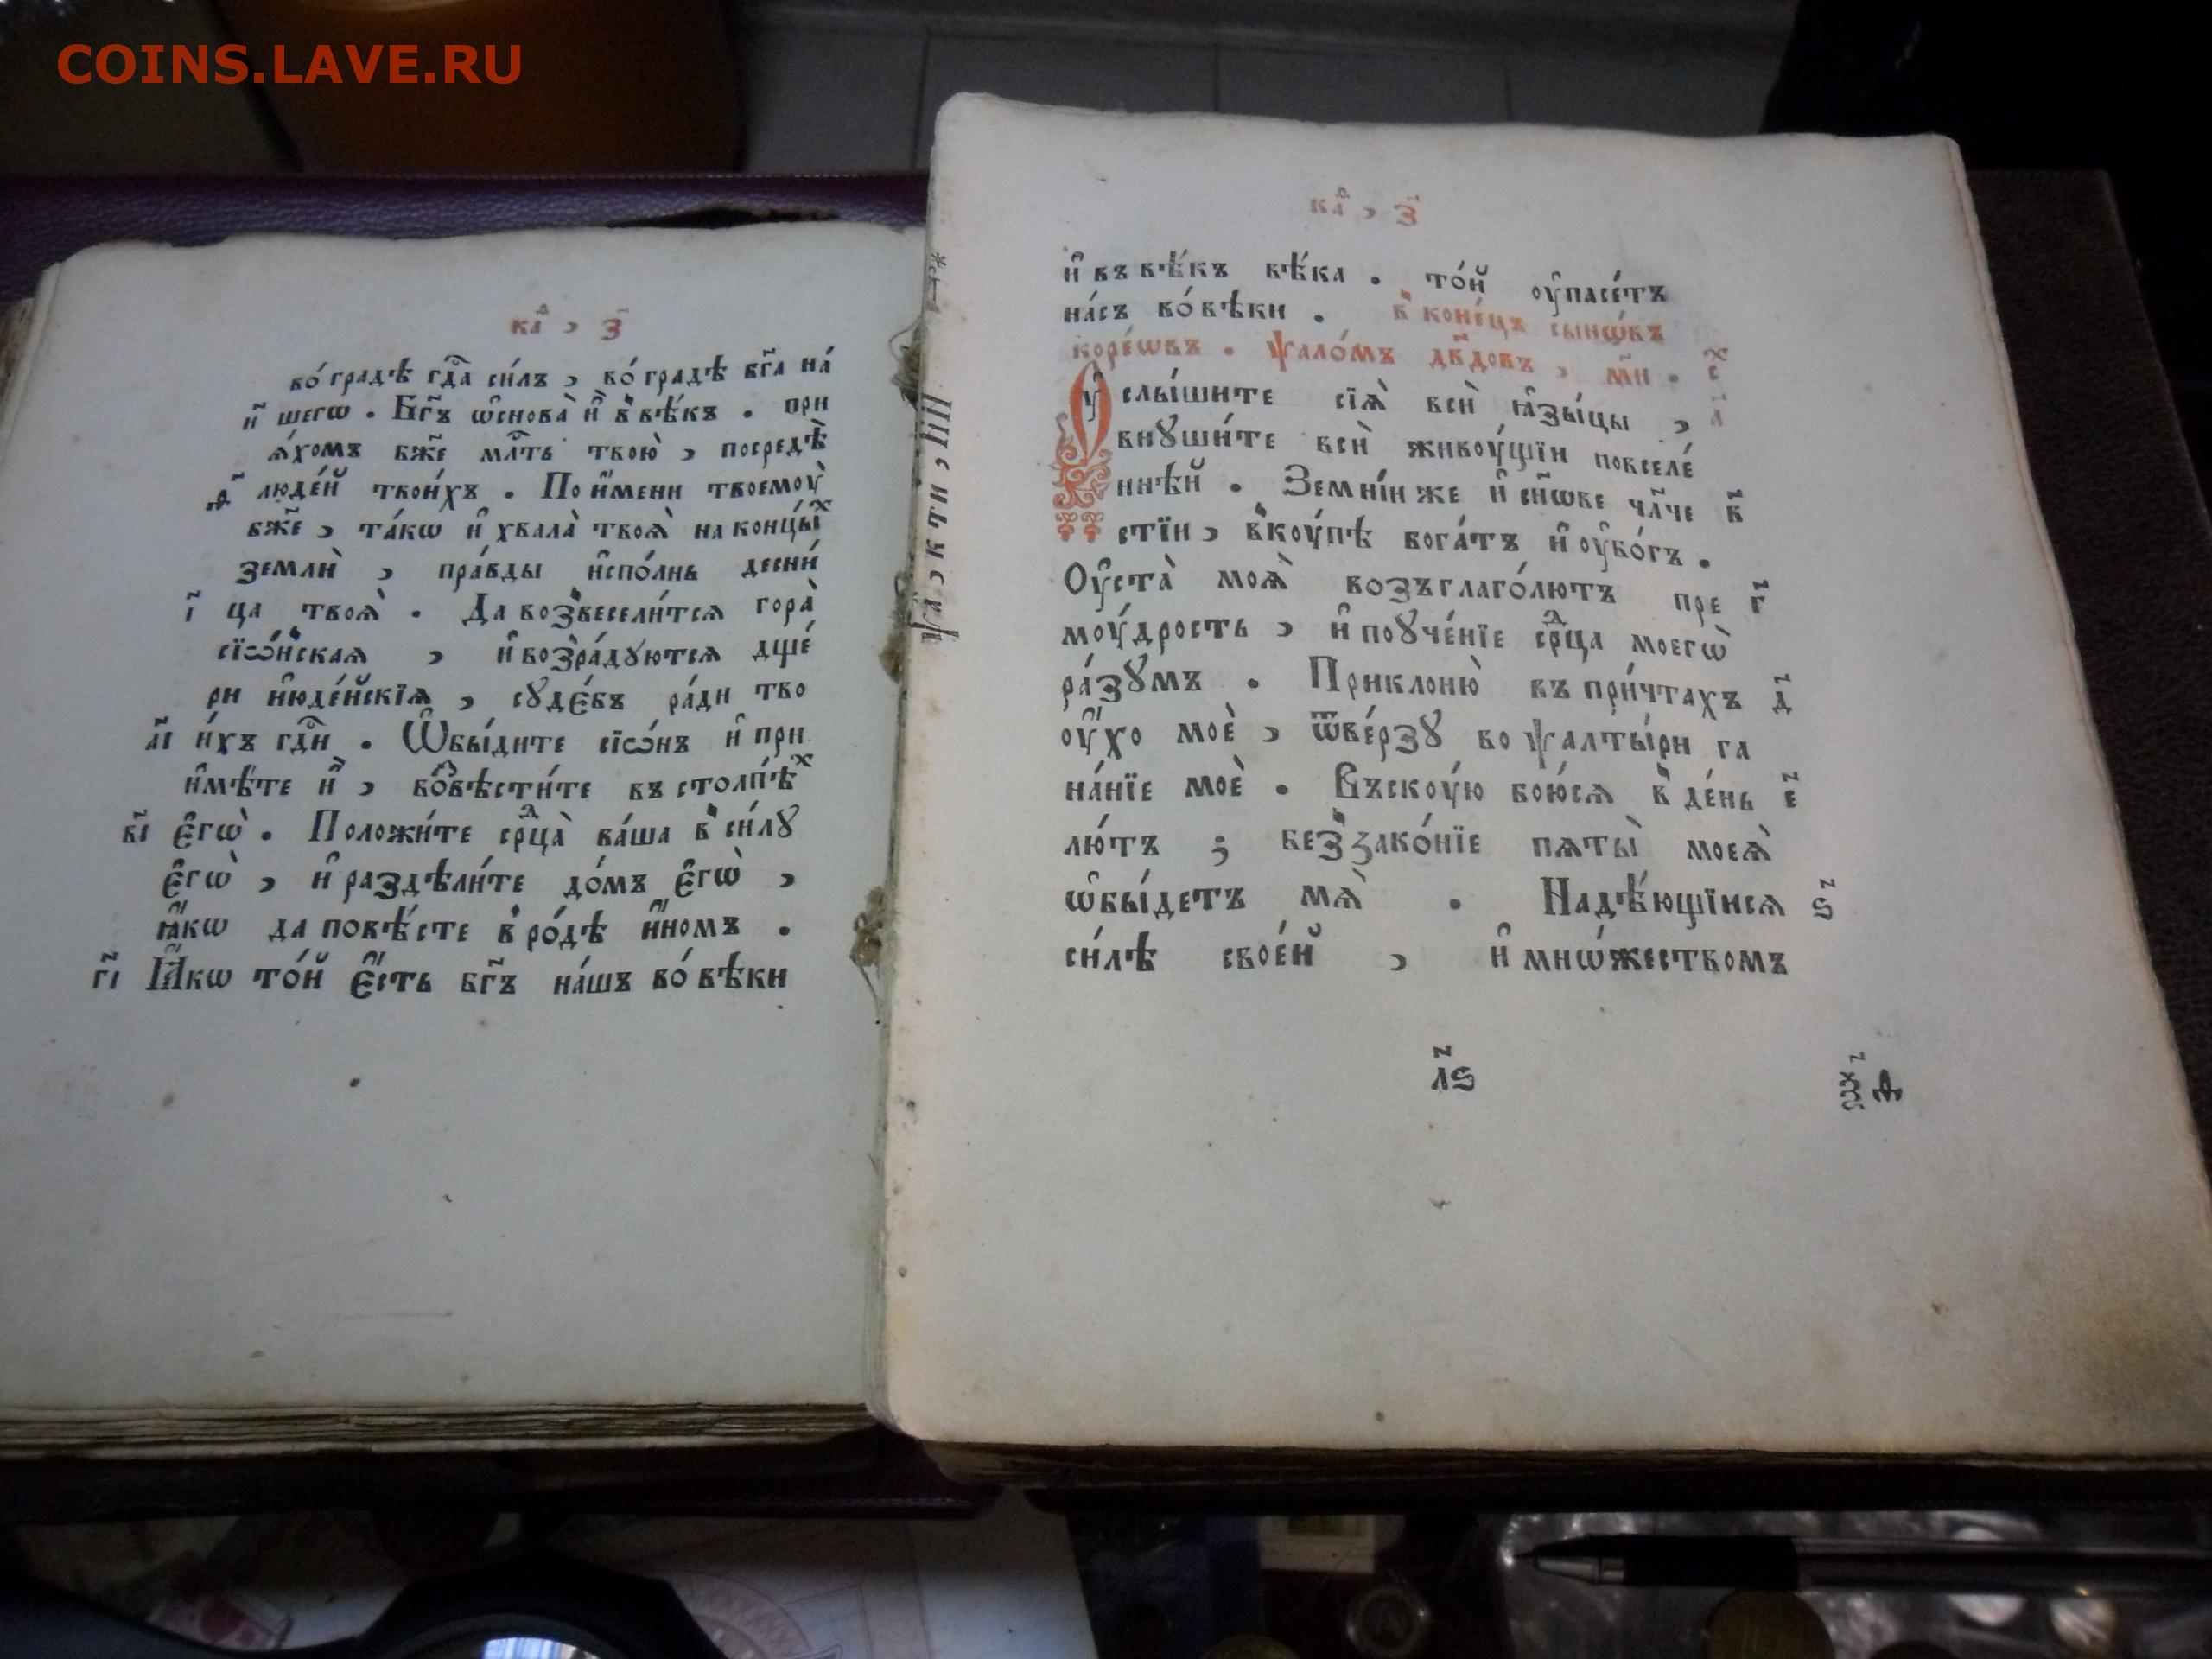 COINS.LAVE.RU
каѳ , з҃
во́ градѣ гдⷭ҇а си́лъ , во́ градѣ бг҃а на́
и҃ шегѡ . Бг҃ъ ѡ҆снова̀ и҆̀ в̾вѣ́къ . при
ѧ́хомъ бж҃е млⷭ҇ть твою̀ , посредѣ̀
ѳ҃ люде́й твои́хъ . По и҆́мени твоемоу̀
бж҃е , та́кѡ и҆ хвала̀ твоѧ̀ на концы́ⷯ
землѝ , пра́вды и҆спо́лнь десни́
і҃ ца твоѧ̀ . Да возвесели́тсѧ гора̀
сїѡ́н̾скаѧ , и҆ возра́дуютсѧ дще́
ри и҆юде́йскїѧ , суде́бъ ра́ди тво
а҃і и́хъ гдⷭ҇и . Ѡ҆бы́дите сїѡ́нъ и҆ при
и҆мѣ́те и҆̀ , повѣсти́те въ столпѣ́ⷯ
в҃і є҆гѡ̀ . Положи́те срⷣца̀ ва́ша в̾ си́лу
є҆гѡ̀ , и҆ раздѣли́те до́мъ є҆гѡ̀ ,
ꙗ҆́кѡ да повѣ́сте в̾ ро́дѣ и҆́номъ .
г҃і Ꙗ҆́кѡ то́й є҆́сть бг҃ъ на́шъ во́ вѣки
каѳ , з҃
и҆ въ вѣ́къ вѣ́ка . то́й оу҆пасе́тъ
на́съ во́ вѣки . в̾ коне́цъ сынѡ́въ
коре́ѡвъ . ѱало́мъ дв҃довъ , м҃и .
Оу҆слы́шите сїѧ̀ всѝ ꙗ҆зы́цы ,
внуши́те всѝ живоу́щїи повселе́
ннѣ́й . Земні́и же и҆ сн҃ѡве чл҃че в҃
стїи , в̾коу́пѣ бога́тъ и҆ оу҆бо́гъ .
Оу҆ста̀ моѧ̀ возъглаго́лютъ пре г҃
моу́дрость , и҆ поуче́нїе срⷣца моегѡ̀
ра́зумъ . Приклоню̀ въ при́чтахъ д҃
оу҆́хо моѐ , ѿве́рзу во ѱалты́ри га
на́нїе моѐ . Въскоу́ю бою́сѧ в̾ де́нь е҃
лю́тъ ; без̾зако́нїе пѧты̀ моеѧ̀
ѡ҆бы́детъ мѧ̀ . Надѣ́ющїисѧ ѕ҃
си́лѣ свое́й , и҆ мнѡ́жествомъ
л҃ѕ